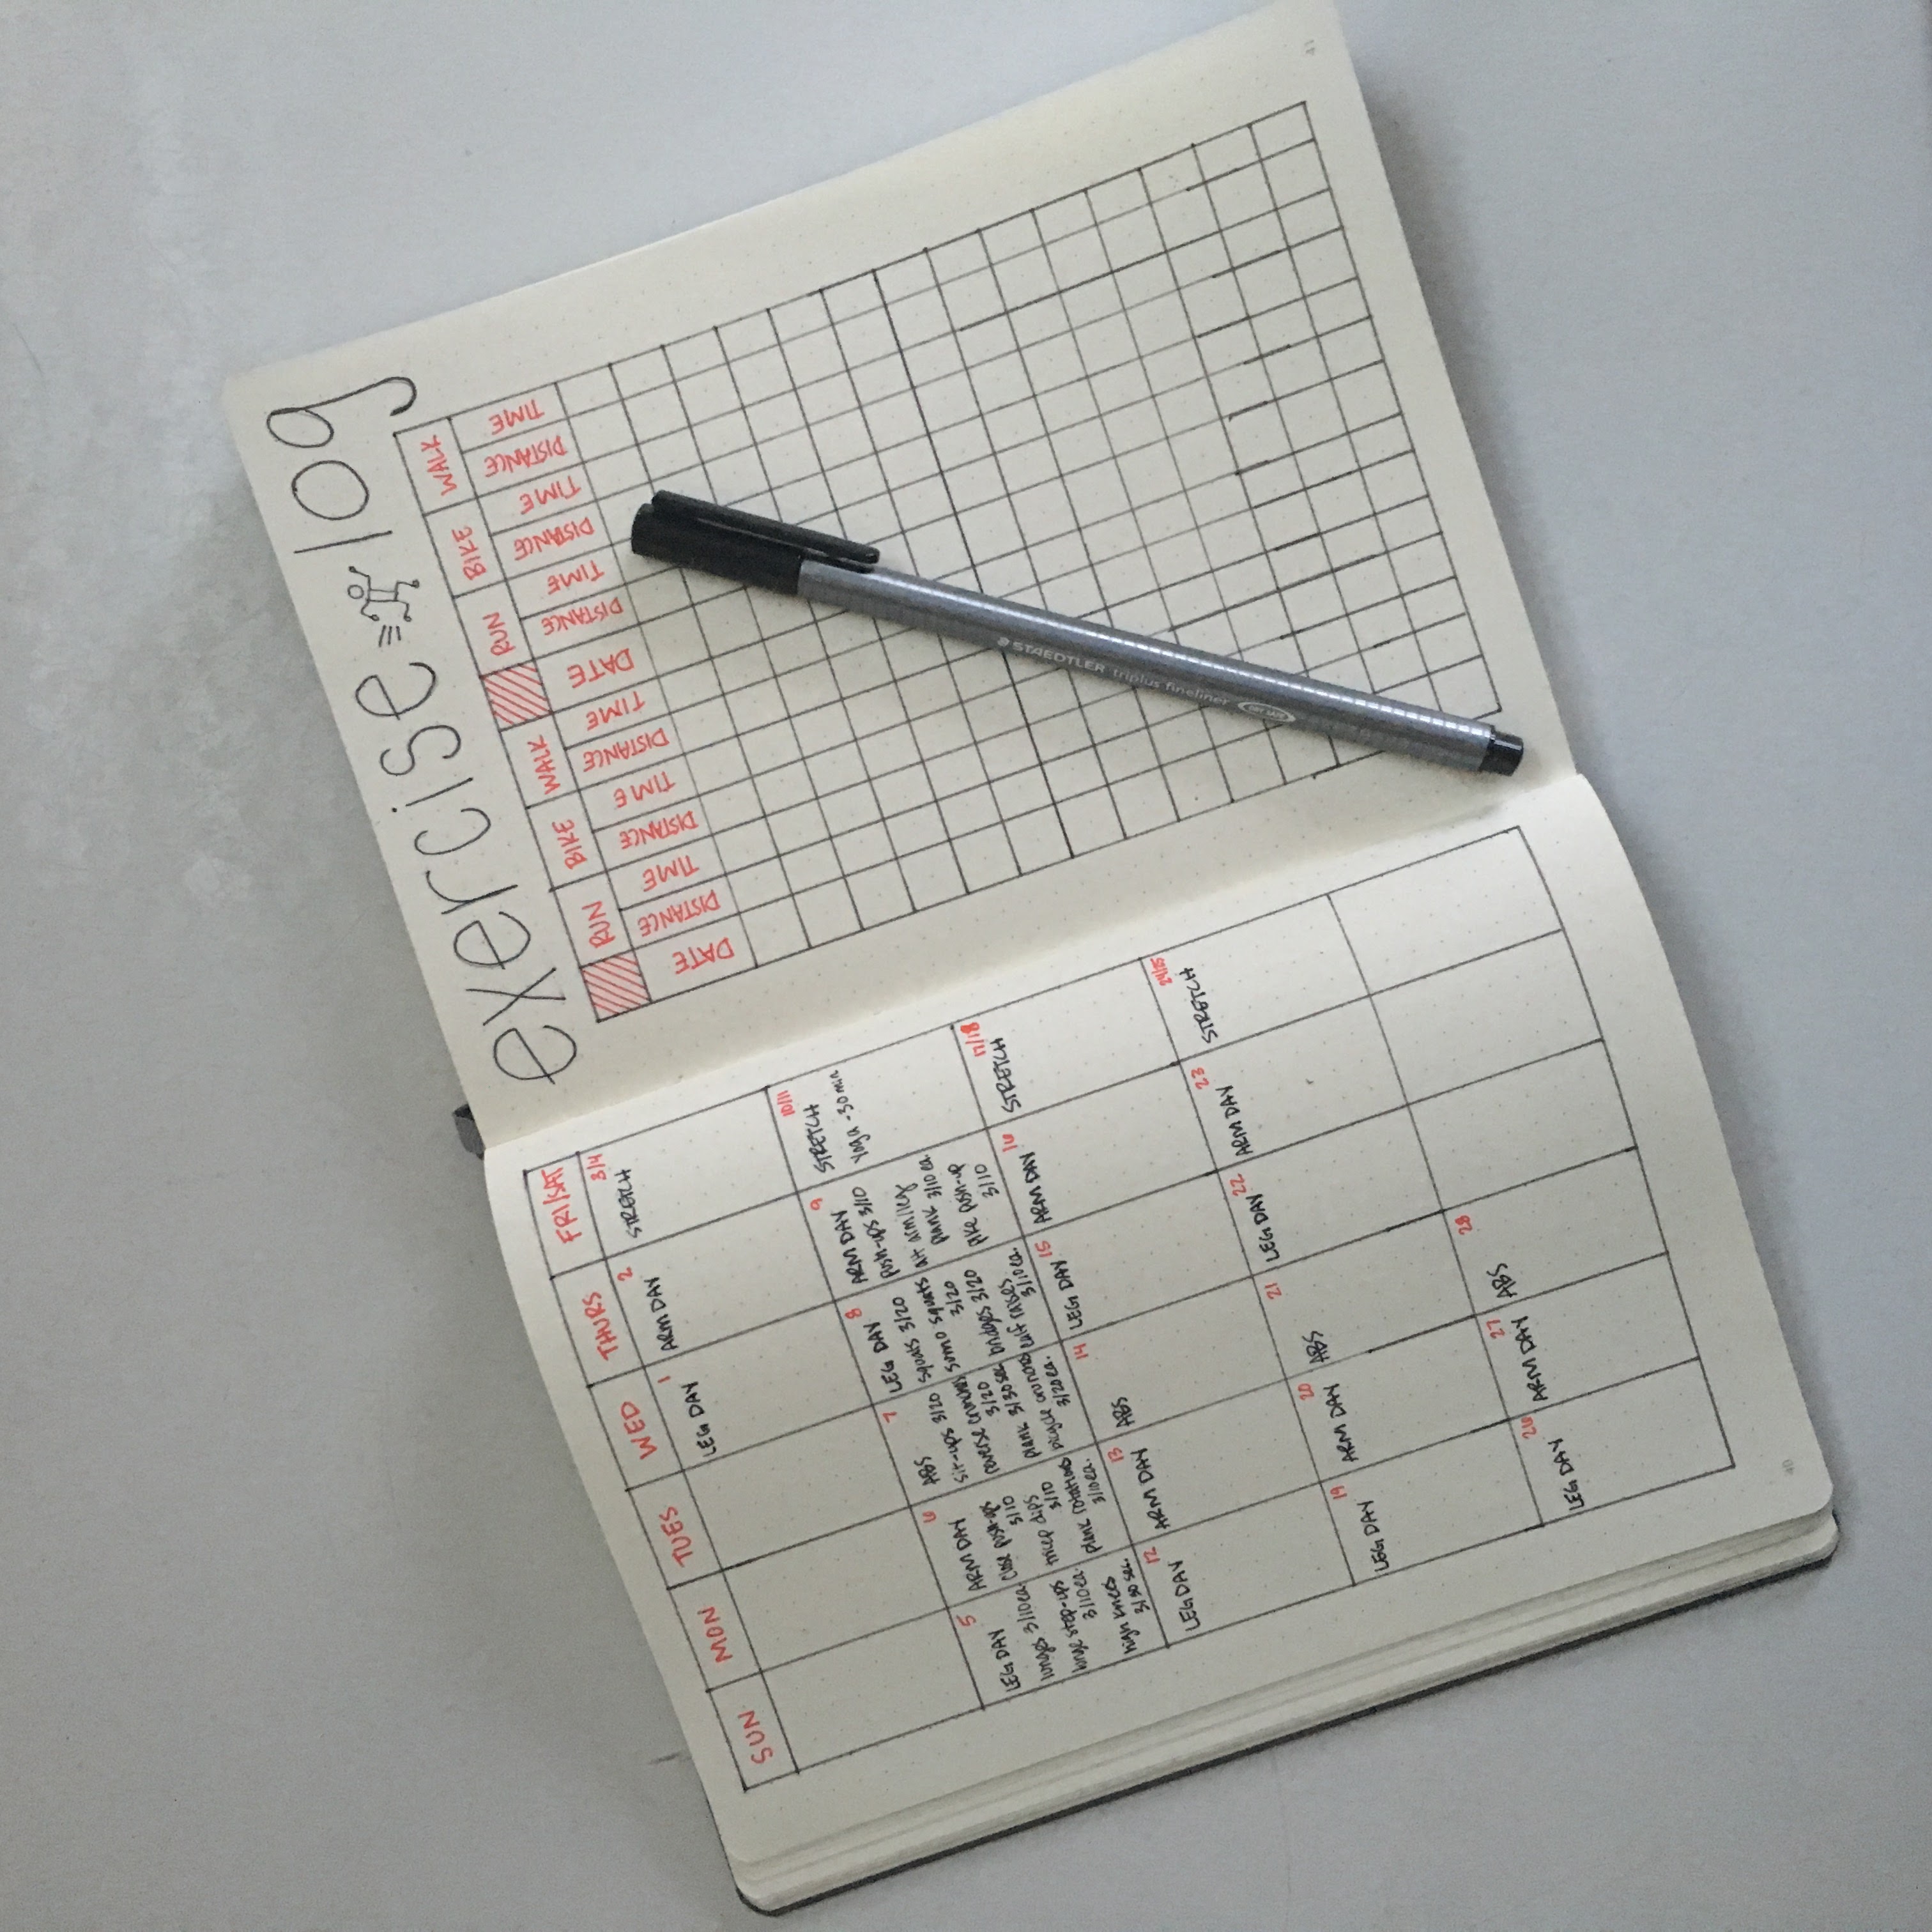 SUN
MON
TUES
WED
THURS
FRI/SAT
1
LEG DAY
2
ARM DAY
3/4
STRETCH
5
LEG DAY
lunges 3/10 ea.
lunge step-ups
3/10 ea.
high knees
3/30 sec.
6
ARM DAY
close push-ups
3/10
tricep dips
3/10
plank rotations
3/10 ea.
7
ABS
sit-ups 3/20
reverse crunches
3/20
plank 3/30 sec.
bicycle crunches
3/20 ea.
8
LEG DAY
squats 3/20
sumo squats
3/20
bridges 3/20
calf raises
3/10 ea.
9
ARM DAY
push-ups 3/10
alt arm/leg
plank 3/10 ea.
pike push-up
3/10
10/11
STRETCH
yoga - 30 min
12
LEG DAY
13
ARM DAY
14
ABS
15
LEG DAY
16
ARM DAY
17/18
STRETCH
19
LEG DAY
20
ARM DAY
21
ABS
22
LEG DAY
23
ARM DAY
24/25
STRETCH
26
LEG DAY
27
ARM DAY
28
ABS
40
exercise log
RUN
BIKE
WALK
RUN
BIKE
WALK
DATE
DISTANCE
TIME
DISTANCE
TIME
DISTANCE
TIME
DATE
DISTANCE
TIME
DISTANCE
TIME
DISTANCE
TIME
STAEDTLER triplus fineliner
41